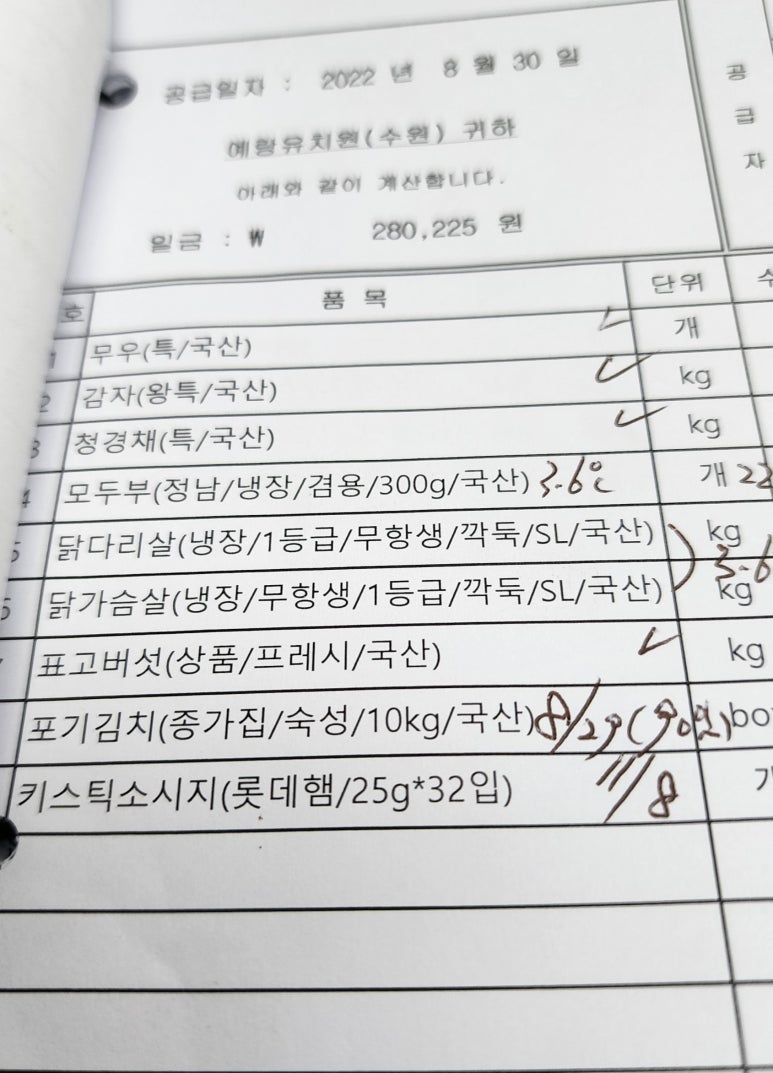 공급일자 : 2022 년 8 월 30 일
예랑유치원(수원) 귀하
아래와 같이 계산합니다.
일금 : ₩ 280,225 원
공
급
자
호 품 목 단위
1 무우(특/국산) 개
2 감자(왕특/국산) kg
3 청경채(특/국산) kg
4 모두부(정남/냉장/겸용/300g/국산) 3.6℃ 개
5 닭다리살(냉장/1등급/무항생/깍둑/SL/국산) kg
6 닭가슴살(냉장/무항생/1등급/깍둑/SL/국산) kg
표고버섯(상품/프레시/국산) kg
포기김치(종가집/숙성/10kg/국산) 8/29(90일)
키스틱소시지(롯데햄/25g*32입) 11/8